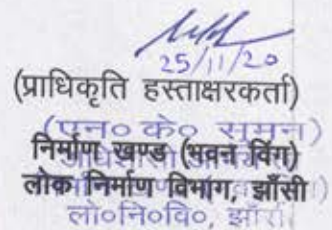 25/11/20
(प्राधिकृति हस्ताक्षरकर्ता)
(एन० के० सुमन)
निर्माण खण्ड (भवन विंग)
लोक निर्माण विभाग, झाँसी
लो०नि०वि०, झाँसी